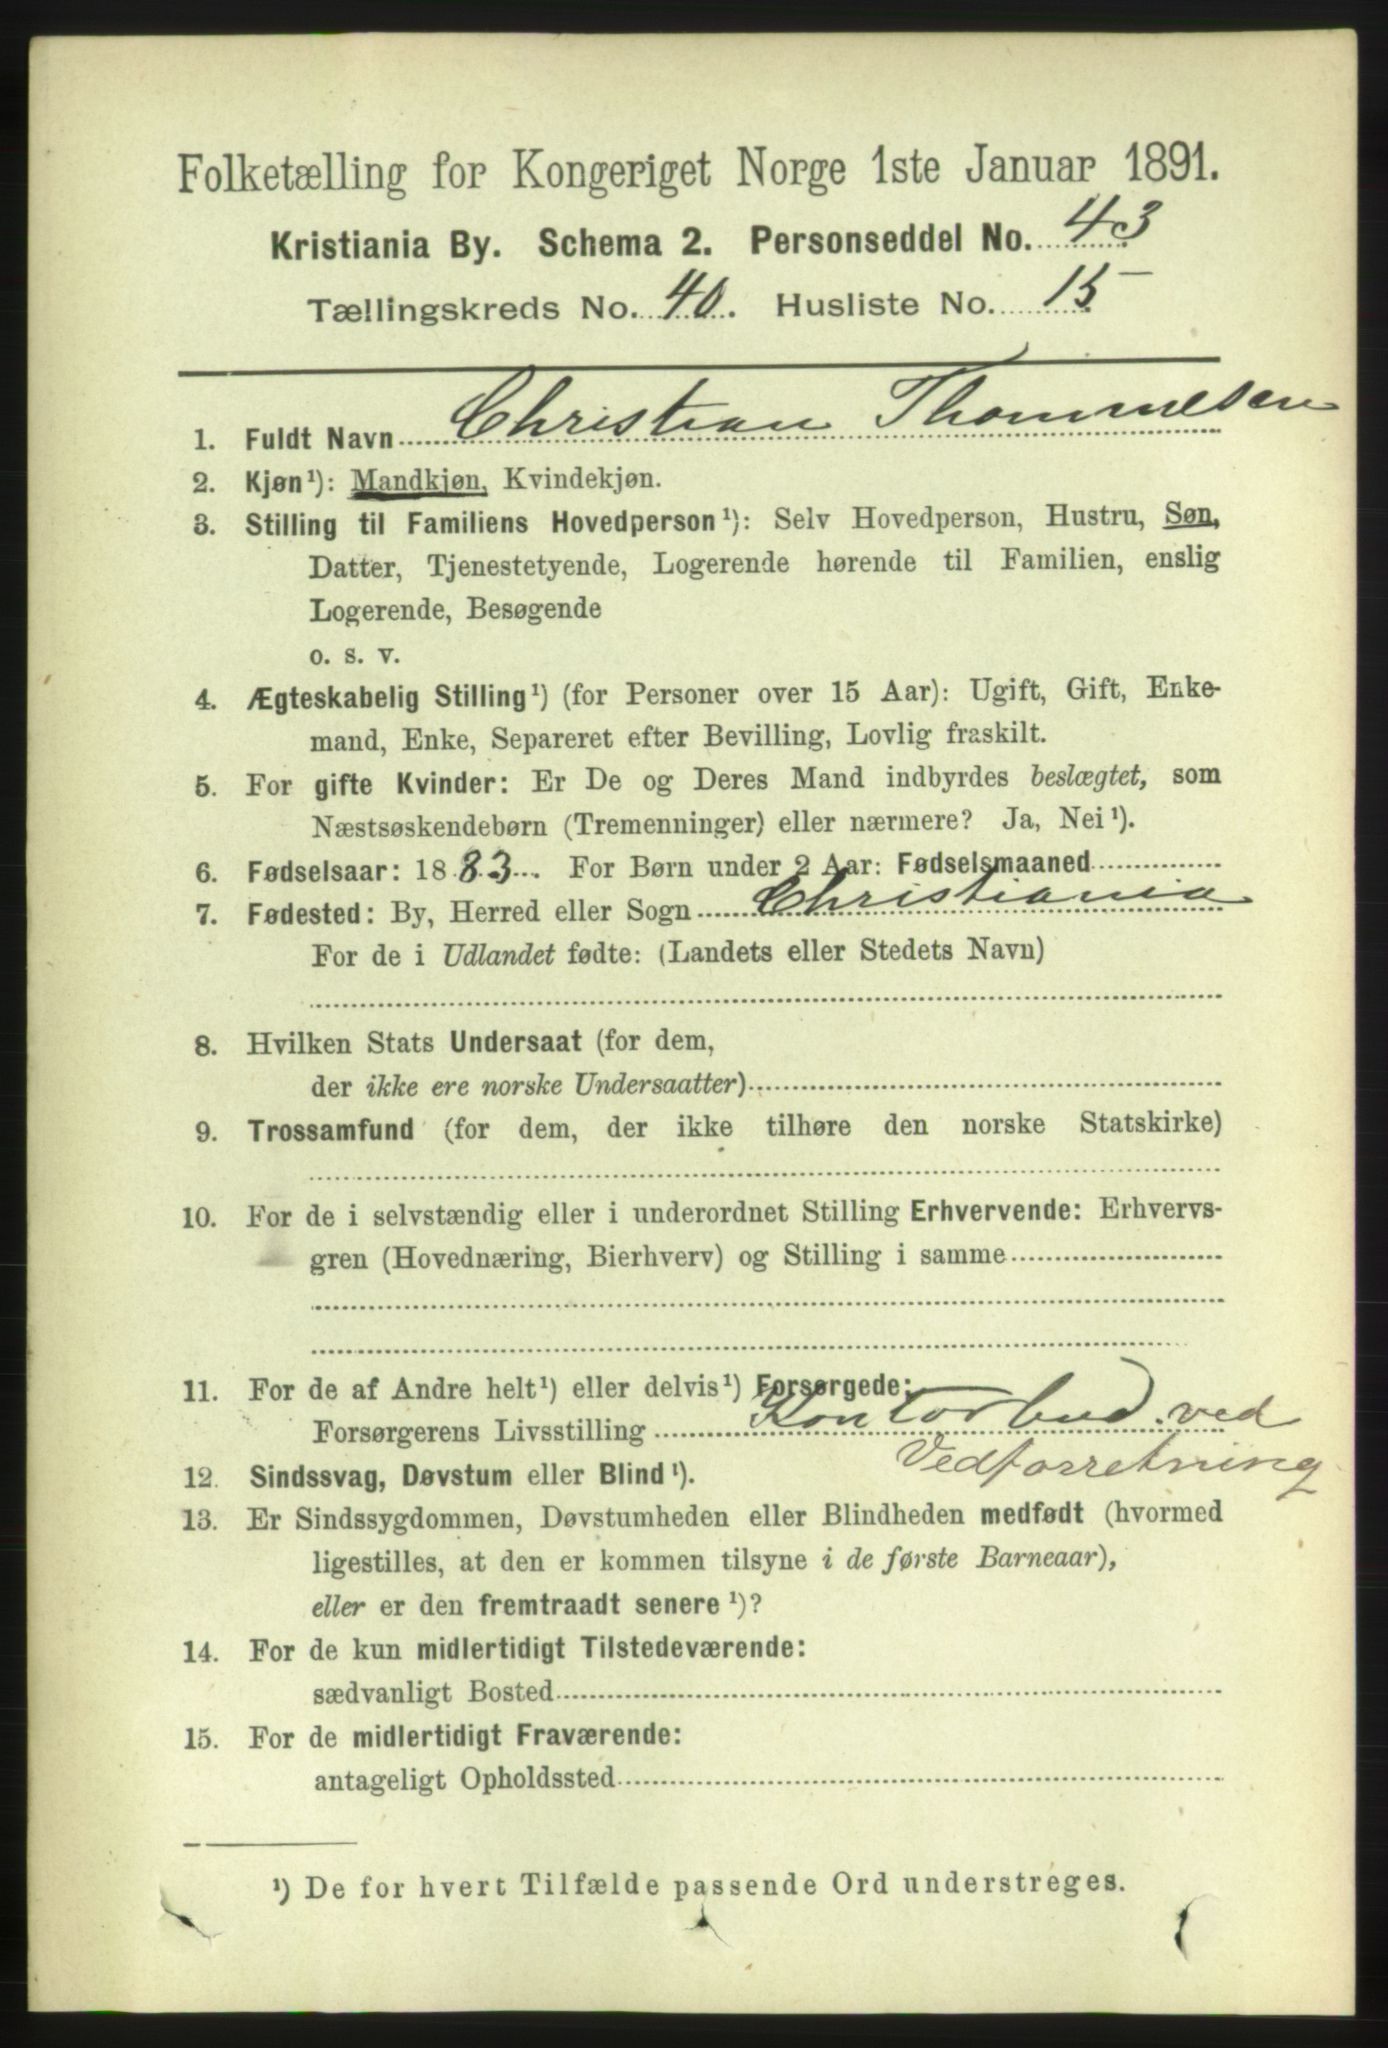 Folketælling for Kongeriget Norge 1ste Januar 1891.
Kristiania By. Schema 2. Personseddel No. 43
Tællingskreds No. 40. Husliste No. 15
1. Fuldt Navn Christian Thommesen
2. Kjøn¹): Mandkjøn, Kvindekjøn.
3. Stilling til Familiens Hovedperson¹): Selv Hovedperson, Hustru, Søn,
Datter, Tjenestetyende, Logerende hørende til Familien, enslig
Logerende, Besøgende
o. s. v.
4. Ægteskabelig Stilling¹) (for Personer over 15 Aar): Ugift, Gift, Enke-
mand, Enke, Separeret efter Bevilling, Lovlig fraskilt.
5. For gifte Kvinder: Er De og Deres Mand indbyrdes beslægtet, som
Næstsøskendebørn (Tremenninger) eller nærmere? Ja, Nei¹).
6. Fødselsaar: 1883. For Børn under 2 Aar: Fødselsmaaned
7. Fødested: By, Herred eller Sogn Christiania
For de i Udlandet fødte: (Landets eller Stedets Navn)
8. Hvilken Stats Undersaat (for dem,
der ikke ere norske Undersaatter)
9. Trossamfund (for dem, der ikke tilhøre den norske Statskirke)
10. For de i selvstændig eller i underordnet Stilling Erhvervende: Erhvervs-
gren (Hovednæring, Bierhverv) og Stilling i samme
11. For de af Andre helt¹) eller delvis¹) Forsørgede:
Forsørgerens Livsstilling Kontorbud ved
Vedforretning
12. Sindssvag, Døvstum eller Blind¹).
13. Er Sindssygdommen, Døvstumheden eller Blindheden medfødt (hvormed
ligestilles, at den er kommen tilsyne i de første Barneaar),
eller er den fremtraadt senere¹)?
14. For de kun midlertidigt Tilstedeværende:
sædvanligt Bosted
15. For de midlertidigt Fraværende:
antageligt Opholdssted
¹) De for hvert Tilfælde passende Ord understreges.